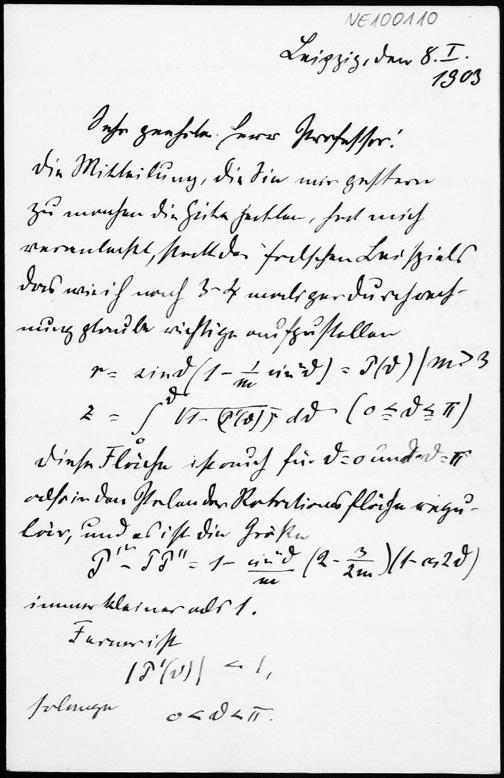 NE100110
Leipzig, den 8. I.
1903
Sehr geehrter Herr Professor!
die Mitteilung, die Sie mir gestern
zu machen die Güte hatten, hat mich
veranlasst, statt des falschen Beispiels
das wie ich nach 3-4 maliger Durchrech-
nung glaube richtige aufzustellen
r = sin ϑ (1 - 1/m sin²ϑ) = P(ϑ) | m > 3
z = ∫₀^ϑ √1-(P'(ϑ))² dϑ (0 ≦ ϑ ≦ π)
diese Fläche ist auch für ϑ=0 und ϑ=π
also in den Polen der Rotationsfläche regu-
lär, und es ist die Größe
P'² - PP'' = 1 - sin²ϑ/m (2 - 3/2m)(1-cos 2ϑ)
immer kleiner als 1.
Ferner ist
|P'(ϑ)| < 1,
solange 0 < ϑ < π.